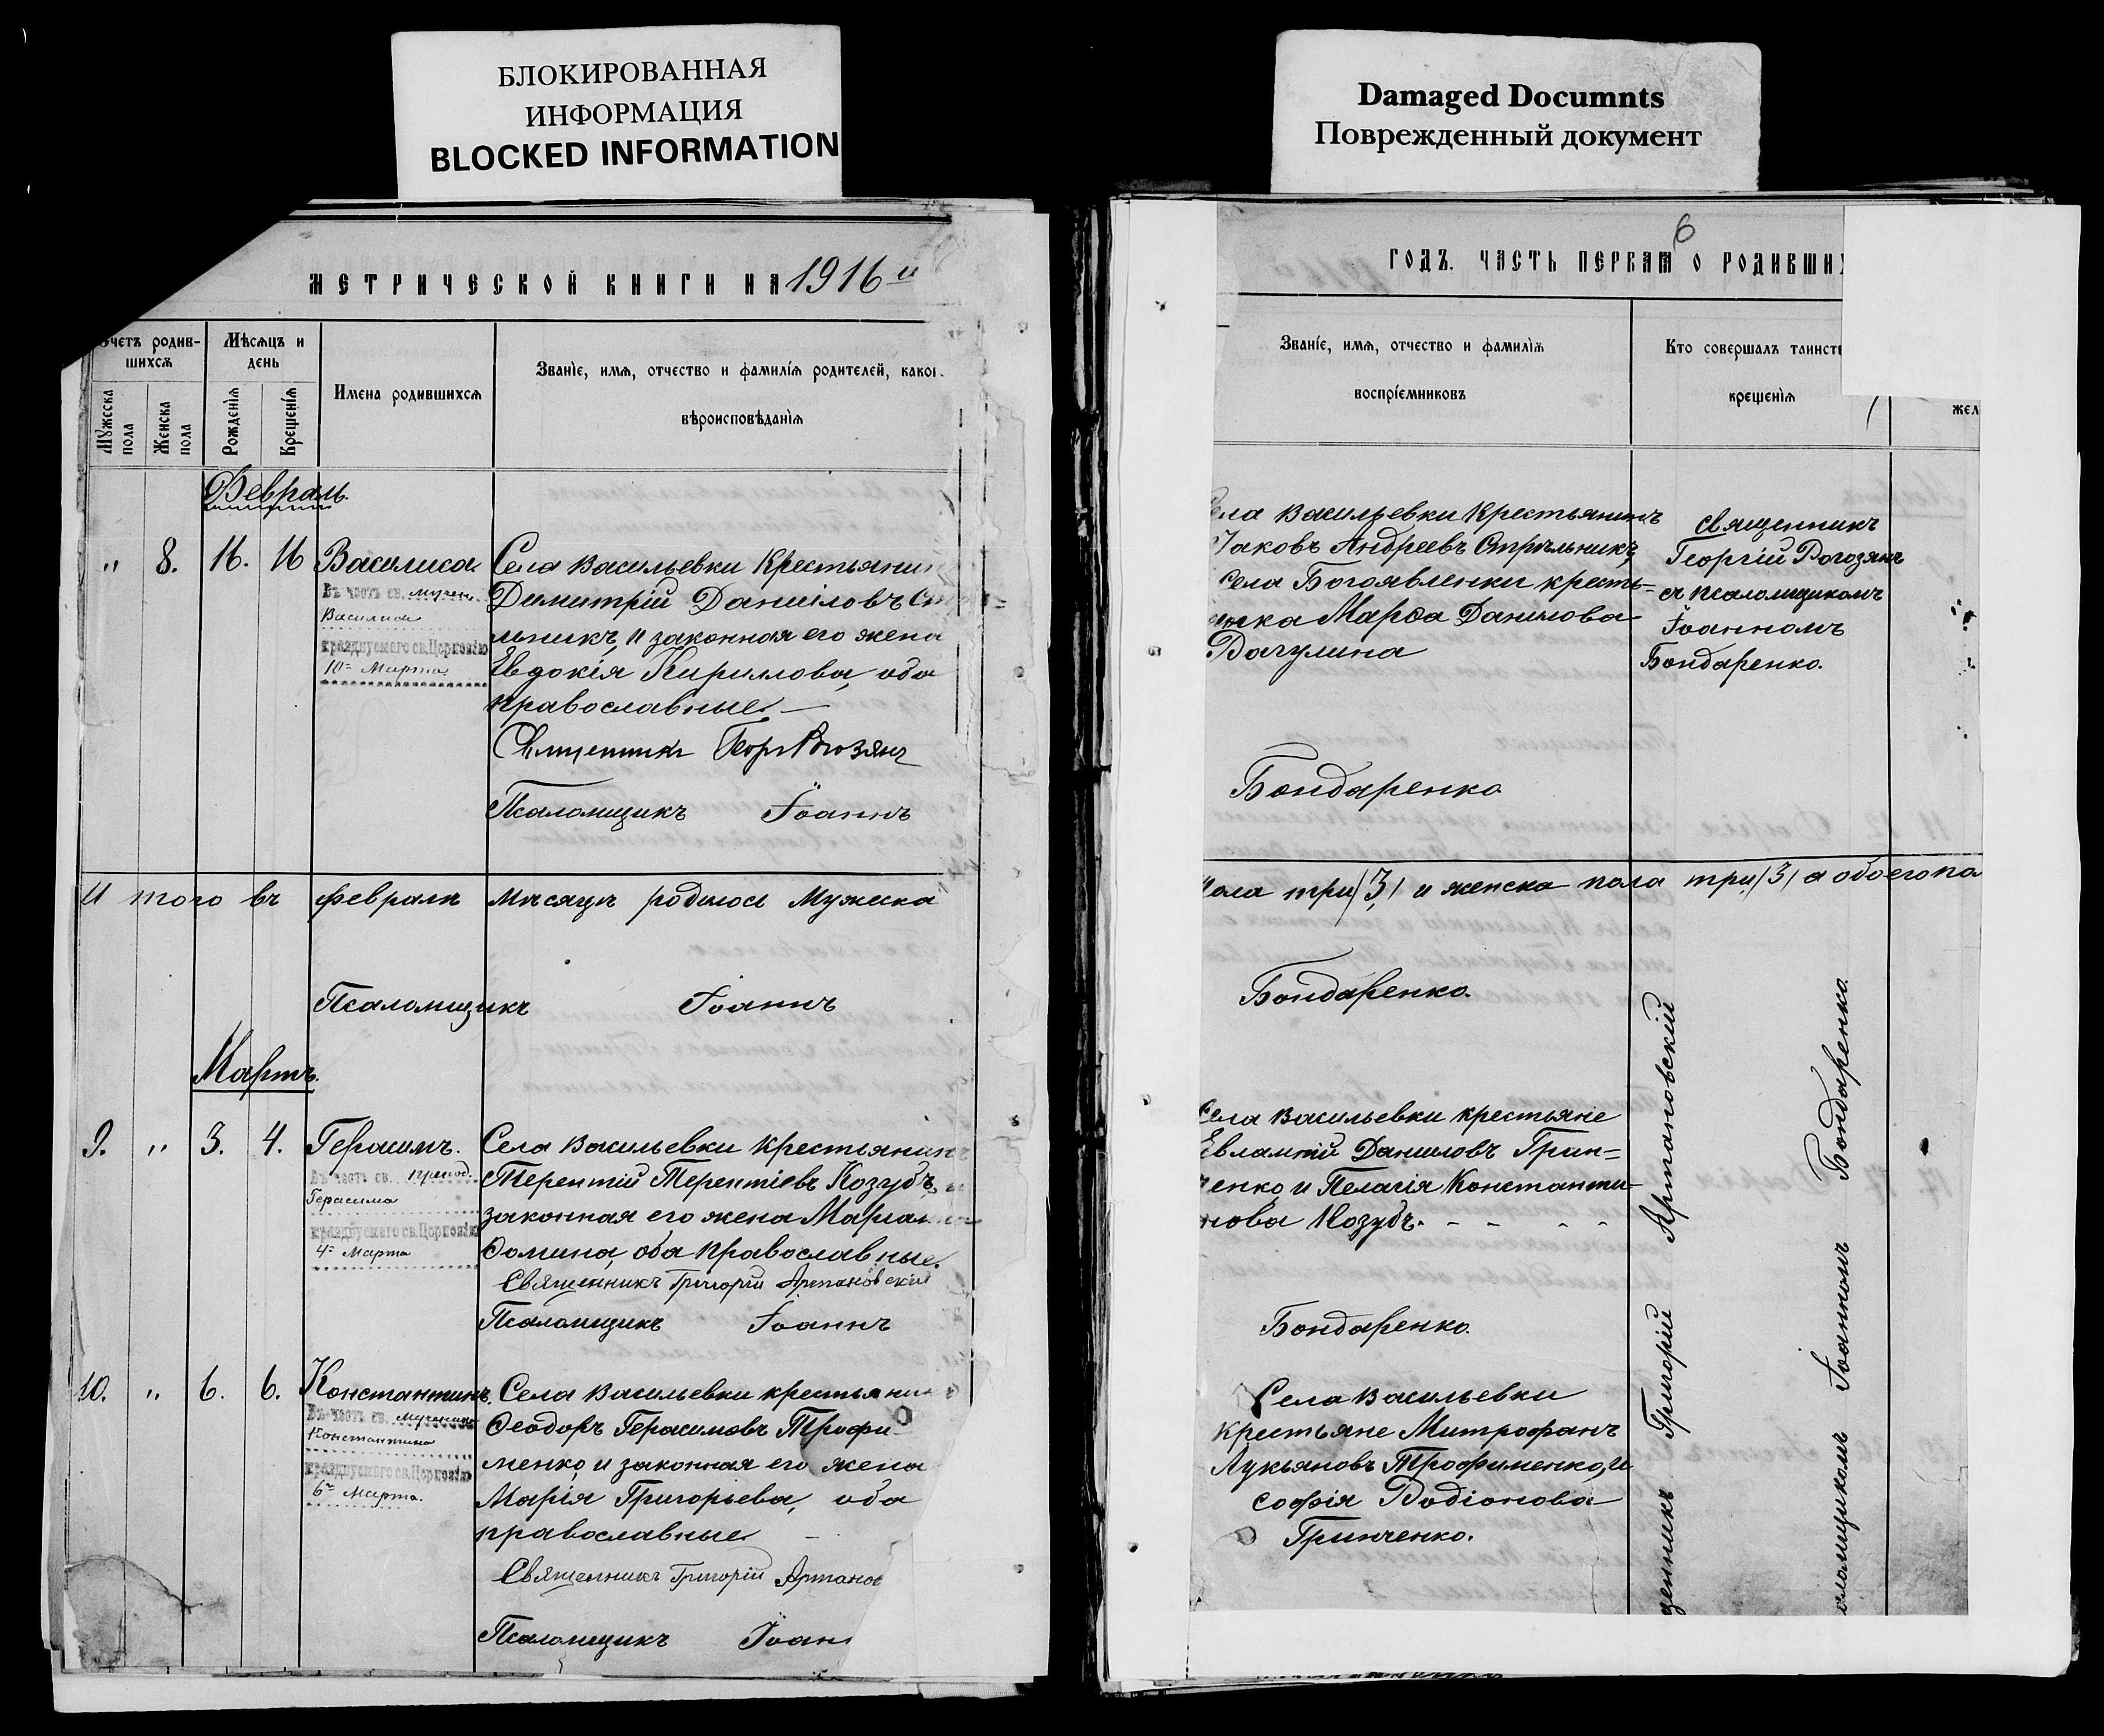 БЛОКИРОВАННАЯ
ИНФОРМАЦИЯ
BLOCKED INFORMATION
МЕТРИЧЕСКОЙ КНИГИ НА 1916 й
Счетъ родив-
шихся
Мѣсяцъ и
день
Имена родившихся
Званіе, имя, отчество и фамилія родителей, каког
вѣроисповѣданія
Мужеска
пола
Женска
пола
Рожденія
Крещенія
Февраль.
" 8. 16. 16 Василиса. Села Васильевки Крестьянин
Въ честь св. мучен. Димитрій Даниловъ Ст
Василисы
льникъ, и законная его жена
празднуемаго св. Церковію
10го Марта. Евдокія Кириллова, оба
православные. —
Священникъ Георг Рогозянъ
Псаломщикъ Іоаннъ
И того въ февралѣ мѣсяцѣ родилось Мужеска
Псаломщикъ Іоаннъ
Мартъ.
9. " 3. 4. Герасимъ. Села Васильевки крестьянинъ
Въ честь св. препод. Терентій Терентіевъ Козубъ, и
Герасима
законная его жена Маріанна
празднуемаго св. Церковію
4го Марта Ѳомина, оба православные.
Священникъ Григорій Артановскій
Псаломщикъ Іоаннъ
10. " 6. 6. Константинъ. Села Васильевки крестьянинъ
Въ честь св. мученика Ѳеодоръ Герасимовъ Трофи-
Константина
менко, и законная его жена
празднуемаго св. Церковію
6го Марта. Марія Григорьева, оба
православные. —
Священникъ Григорій Артанов
Псаломщикъ Іоан
Damaged Documnts
Поврежденный документ
6
ГОДЪ. ЧАСТЬ ПЕРВАЯ О РОДИВШИХ
Званіе, имя, отчество и фамилія
воспріемниковъ
Кто совершалъ таинст
крещенія
жел
Села Васильевки Крестьянинъ
Іаковъ Андреевъ Стрѣльникъ,
села Богоявленки кресть=
янка Марѳа Данилова
Вагулина
священникъ
Георгій Рогозянъ
съ псаломщикомъ
Іоанномъ
Бондаренко.
Бондаренко
пола три /3/ и женска пола три /3/ а обоего по
Бондаренко.
Села Васильевки крестьяне
Евлампій Даниловъ Грин=
ченко, и Пелагія Константи-
нова Козубъ. - - - -
Бондаренко.
Села Васильевки
крестьяне Митрофанъ
Лукьяновъ Трофименко, и
Софія Водіонова
Гринченко.
щенникъ Григорій Артановскій
аломщикомъ Іоанномъ Бондаренко.